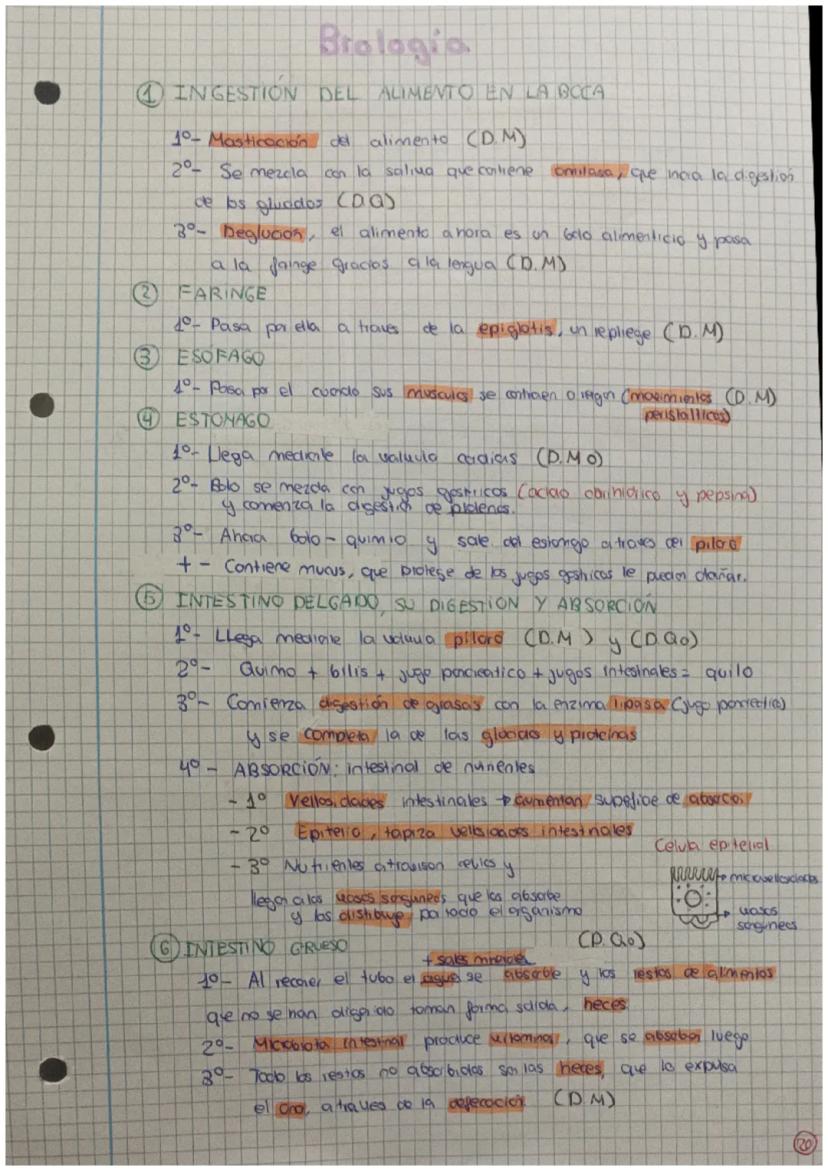 Biología
① INGESTIÓN DEL ALIMENTO EN LA BOCA
1º- Masticación del alimento (D.M)
2º- Se mezcla con la saliva que contiene amilasa, que inicia la digestión
de los glucidos (D.Q)
3º- Deglución, el alimento ahora es un bolo alimenticio y pasa
a la faringe gracias a la lengua (D.M)
② FARINGE
1º- Pasa por ella a traves de la epiglotis, un repliege (D.M)
③ ESÓFAGO
1º- Pasa por el cuando sus musculos se contraen o relajan (movimientos (D.M)
peristalticos)
④ ESTOMAGO
1º- Llega mediante la valvula cardias (D.MQ)
2º- Bolo se mezcla con jugos gastricos (acido clorhidrico y pepsina)
y comienza la digestión de proteinas.
3º- Ahora bolo - quimio y sale del estomgo a traves del piloro
+ - Contiene mucus, que protege de los jugos gastricos le puedan dañar.
⑤ INTESTINO DELGADO, SU DIGESTIÓN Y ABSORCIÓN
1º- Llega mediante la valvula piloro (D.M) y (D.Qo)
2º- Quimo + bilis + jugo pancreatico + jugos intestinales = quilo
3º- Comienza digestión de grasas con la enzima lipasa (jugo pancretico)
y se completa la de las glucidos y proteinas
4º - ABSORCIÓN: intestinal de nutrientes
- 1º Vellosidades intestinales → aumentan superficie de absorci.
- 2º Epitelio, tapiza vellosidades intestinales
Celula epitelial
- 3º Nutrientes atraviesan celulas y
→ microvellosidades
llegan a los vasos sanguineos que los absorbe
y los distribuye por todo el organismo
→ vasos
sanguineos
⑥ INTESTINO GRUESO (D.Qo)
+ sales minerales
1º- Al recorrer el tubo el agua se absorbe y los restos de alimentos
que no se han digerido toman forma solida, heces
2º- Microbiota intestinal produce vitaminas, que se absorben luego
3º- Todo los restos no absorbidos son las heces, que lo expulsa
el ano, a traves de la defecación (D.M)
20